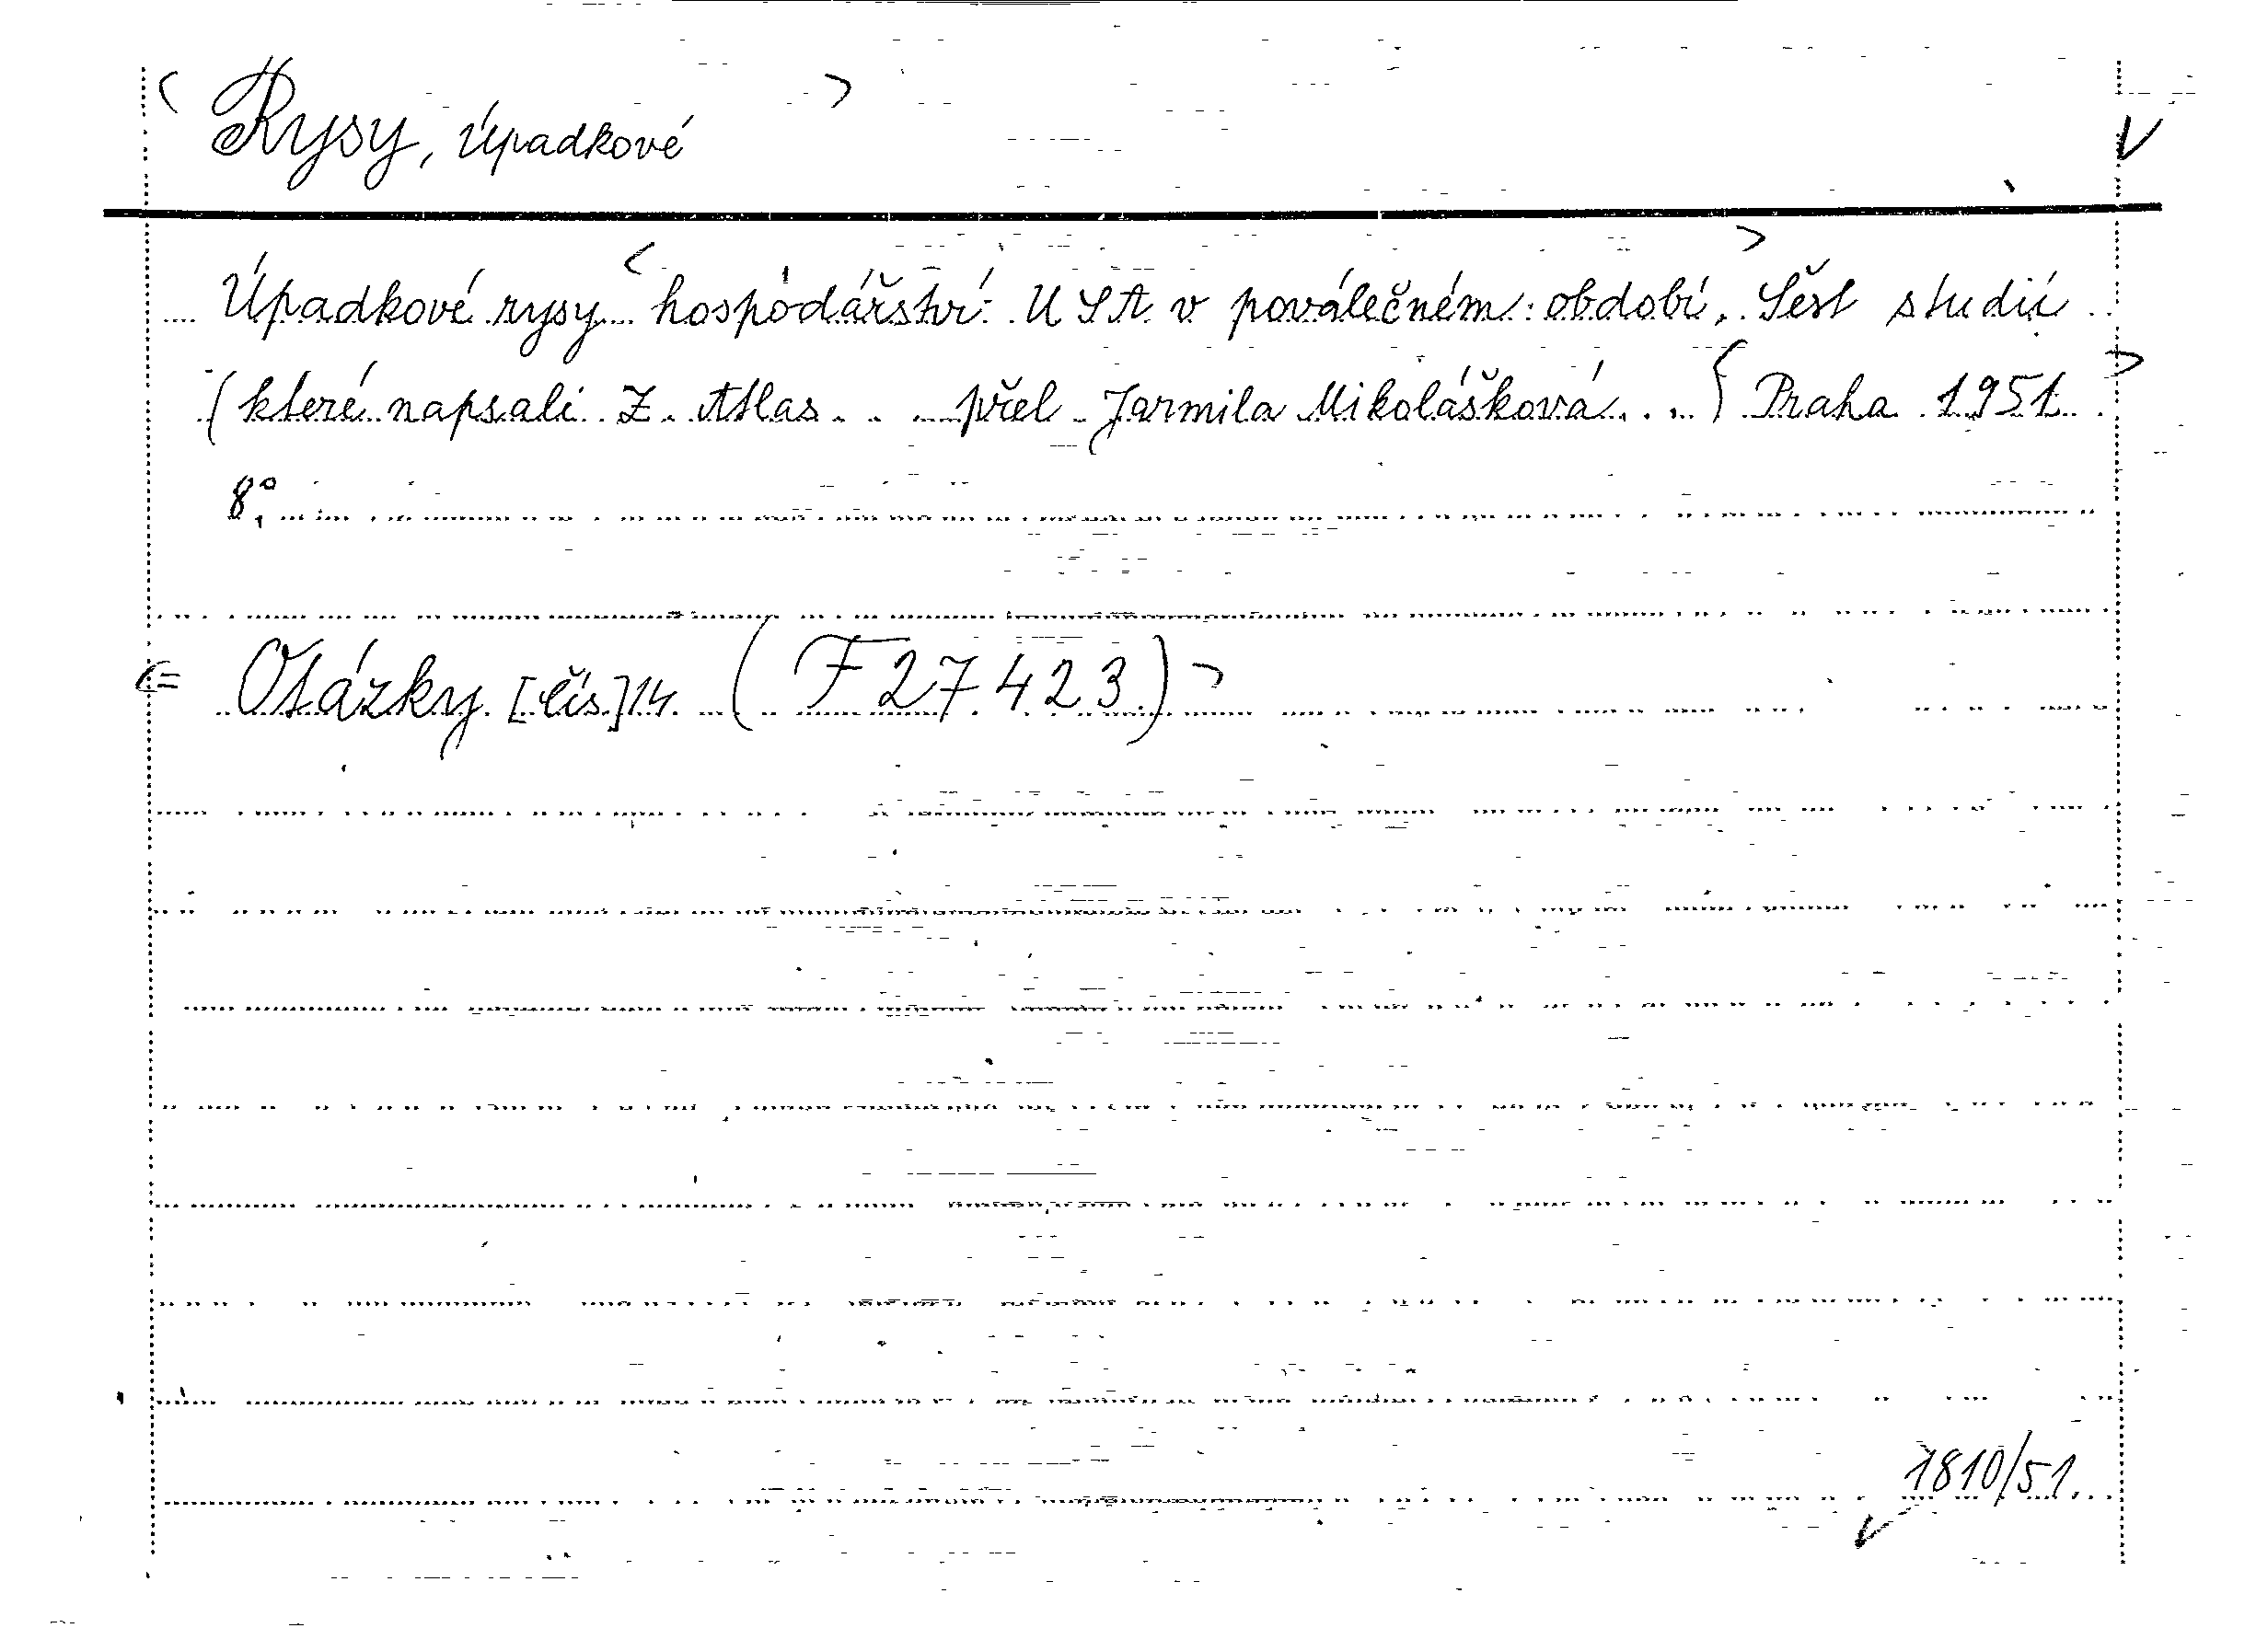 < Rysy, Úpadkové >
Úpadkové rysy < hospodářství USA v poválečném období. > Šest studií
(které napsali Z. Atlas . . . přel. Jarmila Mikolášková. . . { Praha 1951 >
8°.
<= Otázky [čís.] 14. (F 27423) >
1810/51.